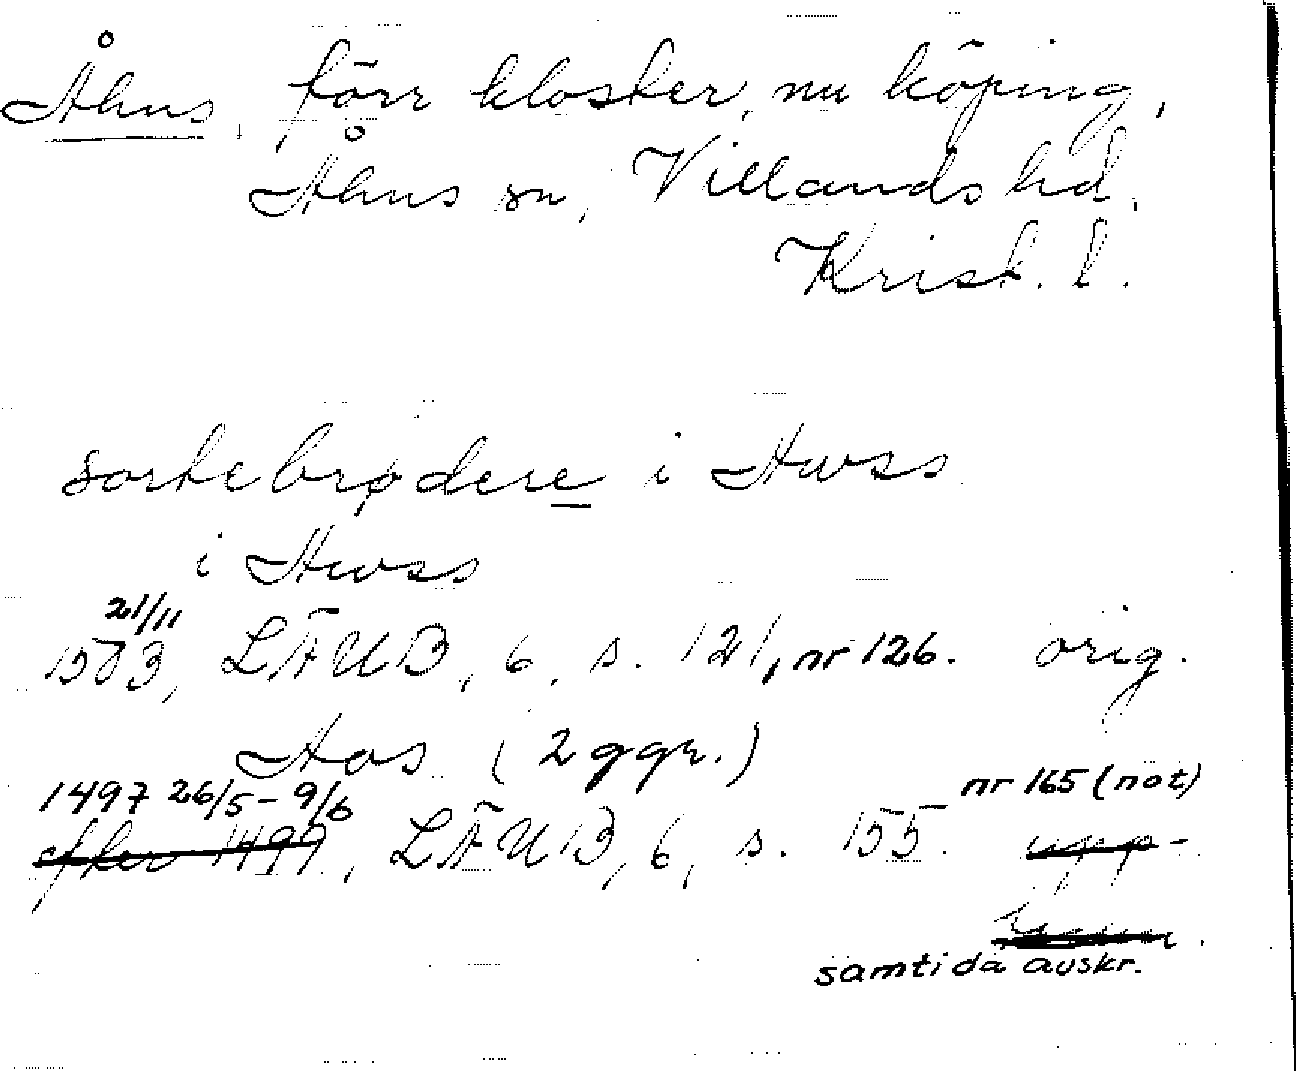 Åhus, förr kloster, nu köping,
Åhus sn, Villands hd,
Krist. l.
sortebrødere i Awss
i Awss
21/11
1503, LÄUB, 6, s. 121, nr 126. orig.
Aos (2 ggr.)
1497 26/5 - 9/6 nr 165 (not)
efter 1497, LÄUB, 6, s. 155. upp-
samtida avskr.